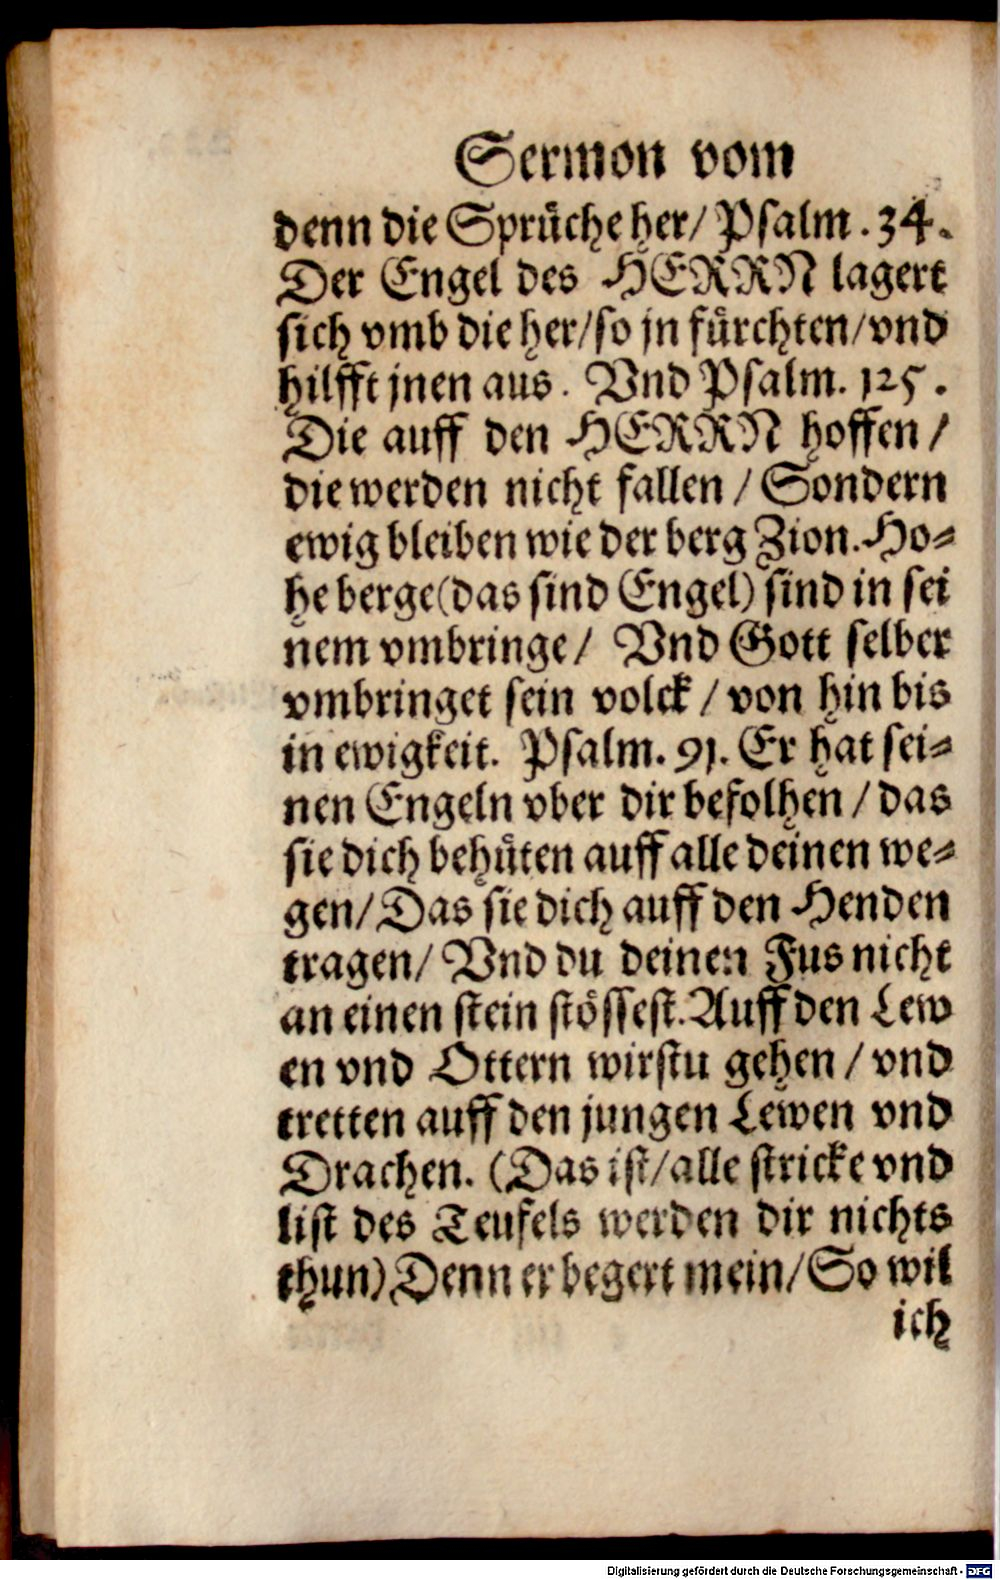 Sermon vom
denn die Sprüche her/ Psalm. 34.
Der Engel des HERRN lagert
sich vmb die her/ so jn fürchten/ vnd
hilfft jnen aus. Vnd Psalm. 125.
Die auff den HERRN hoffen /
die werden nicht fallen / Sondern
ewig bleiben wie der berg Zion. Ho-
he berge (das sind Engel) sind in sei
nem vmbringe/ Vnd Gott selber
vmbringet sein volck / von hin bis
in ewigkeit. Psalm. 91. Er hat sei-
nen Engeln vber dir befolhen / das
sie dich behüten auff alle deinen we-
gen/ Das sie dich auff den Henden
tragen/ Vnd du deinen Fus nicht
an einen stein stössest. Auff den Lew
en vnd Ottern wirstu gehen / vnd
tretten auff den jungen Lewen vnd
Drachen. (Das ist/ alle stricke vnd
list des Teufels werden dir nichts
thun) Denn er begert mein/ So wil
ich
Digitalisierung gefördert durch die Deutsche Forschungsgemeinschaft - DFG